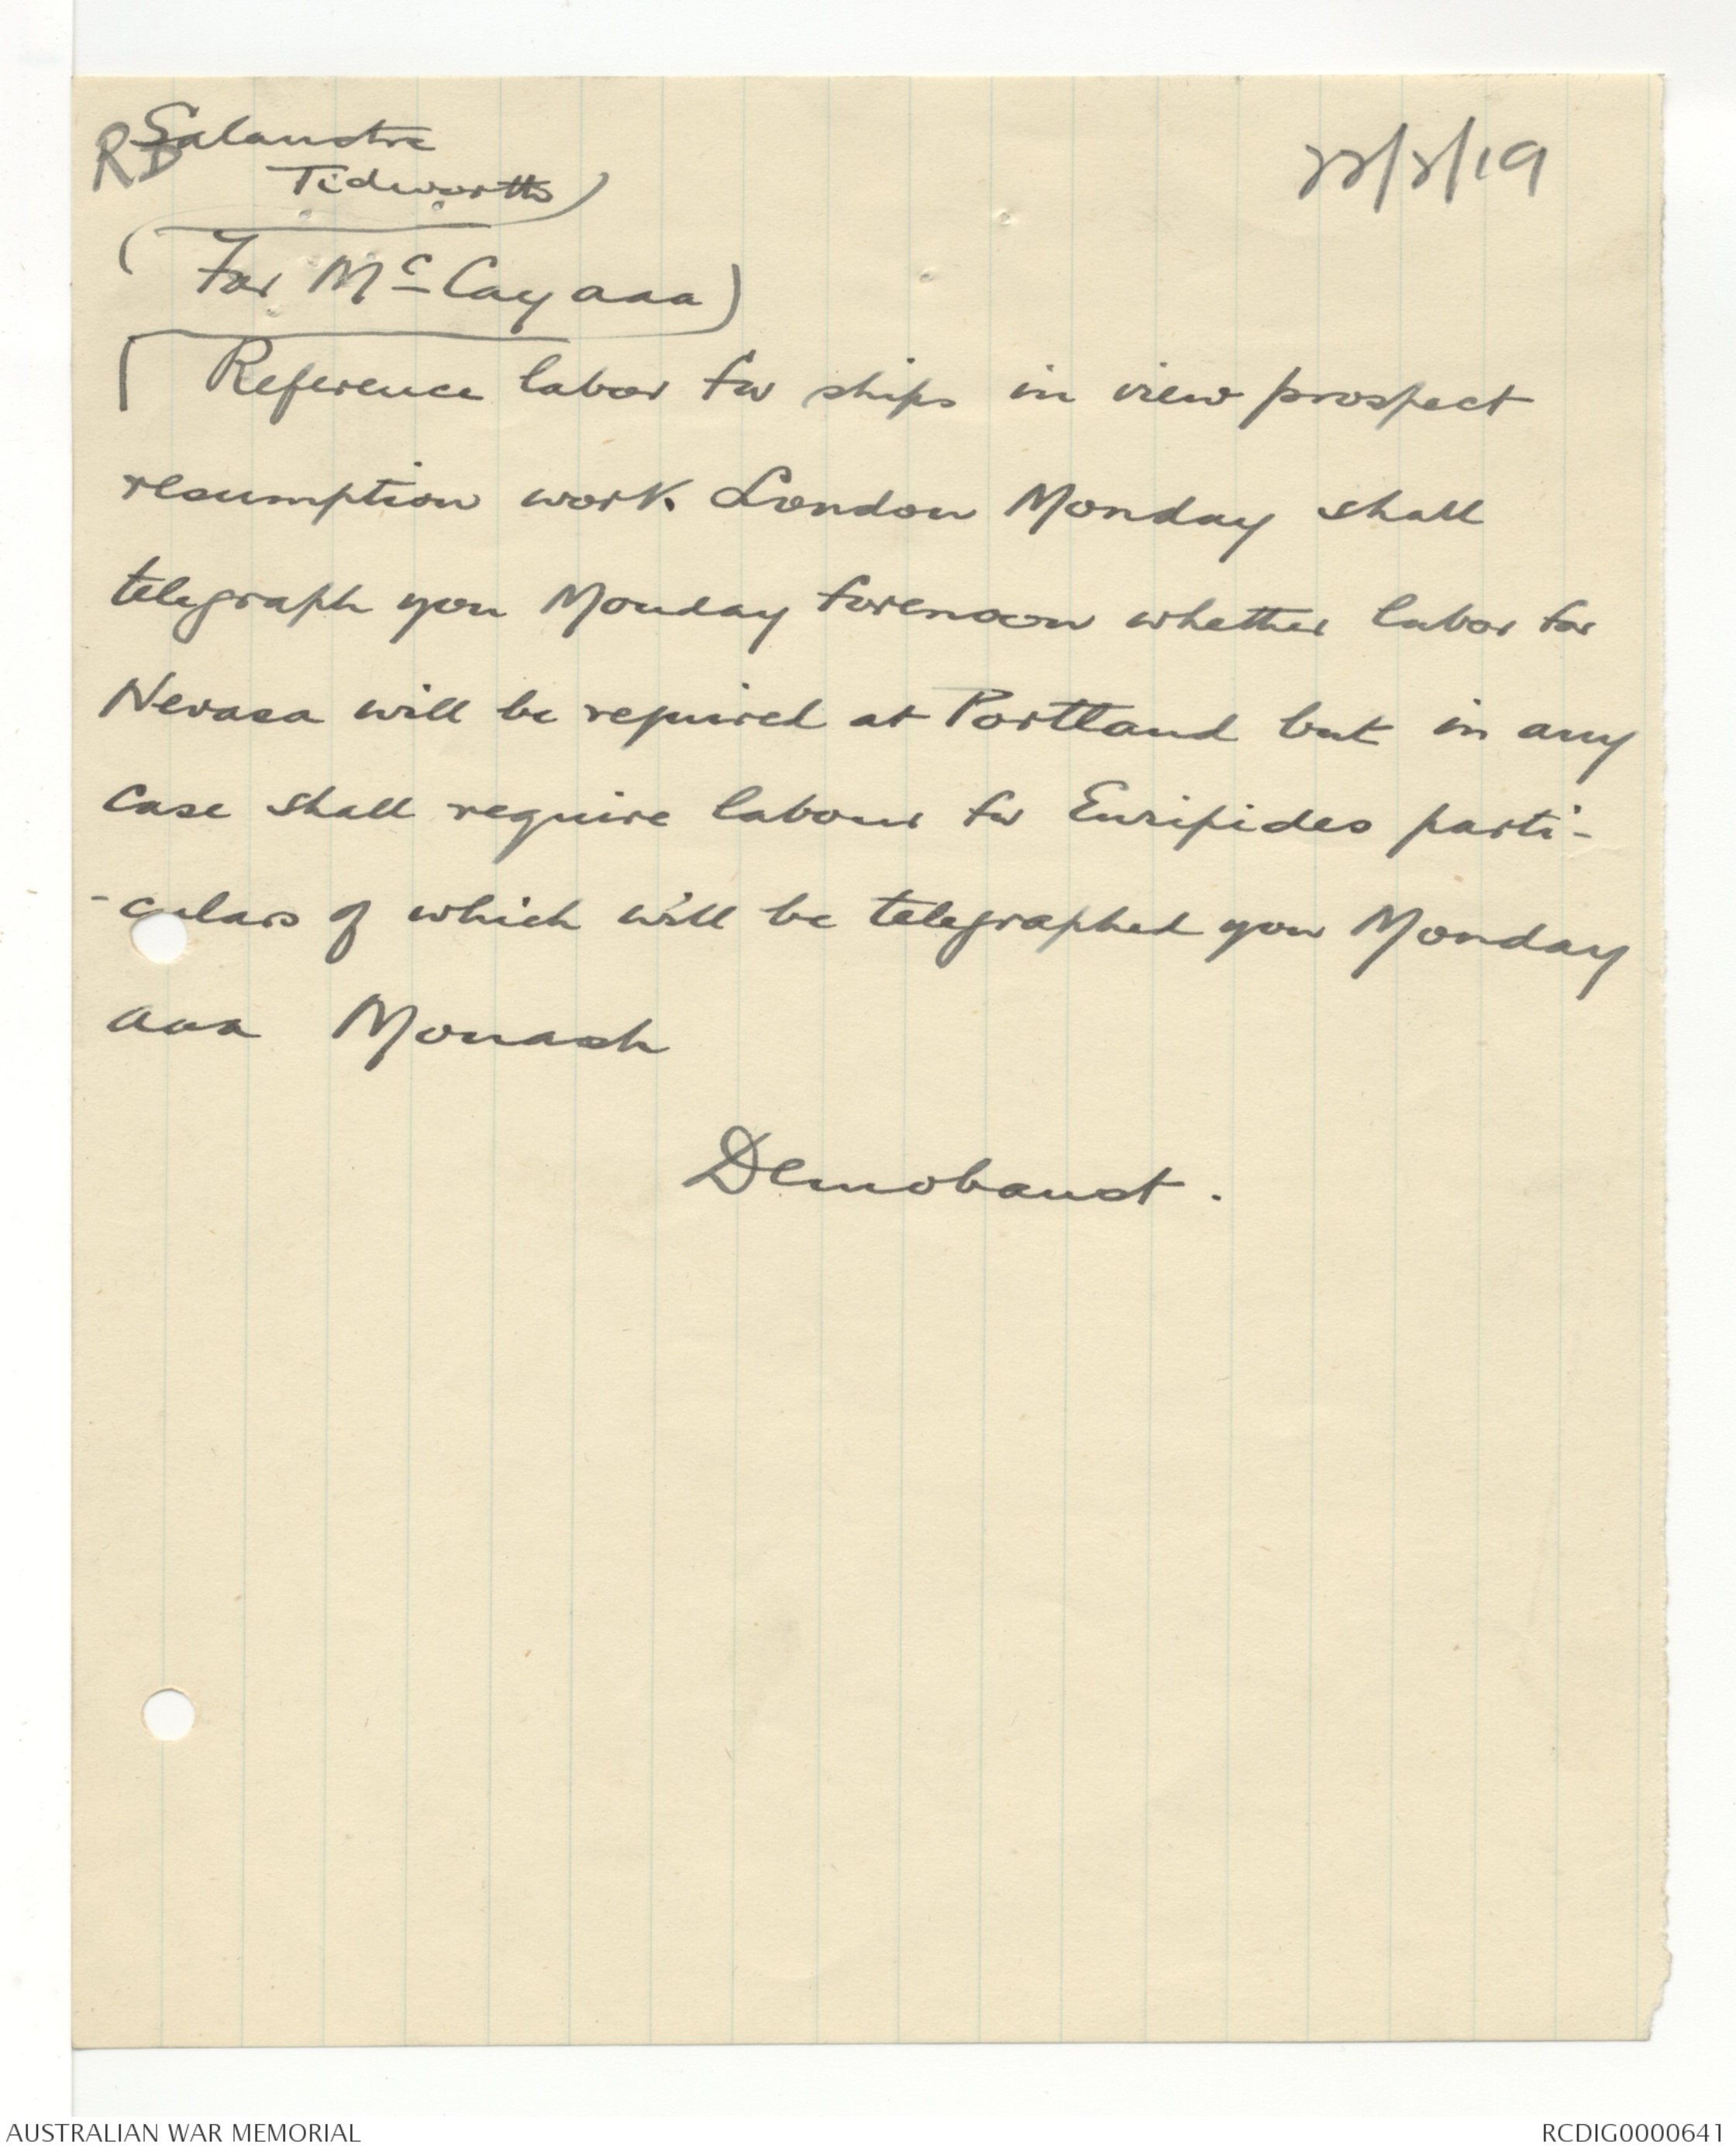 RB Salaustre
Tidworth
22/2/19
For McCay aaa
Reference labor for ships in view prospect
resumption work London Monday shall
telegraph you Monday forenoon whether labor for
Nevasa will be required at Portland but in any
case shall require labour for Euripides parti-
-culars of which will be telegraphed you Monday
aaa Monash
Demobaust.
AUSTRALIAN WAR MEMORIAL
RCDIG0000641